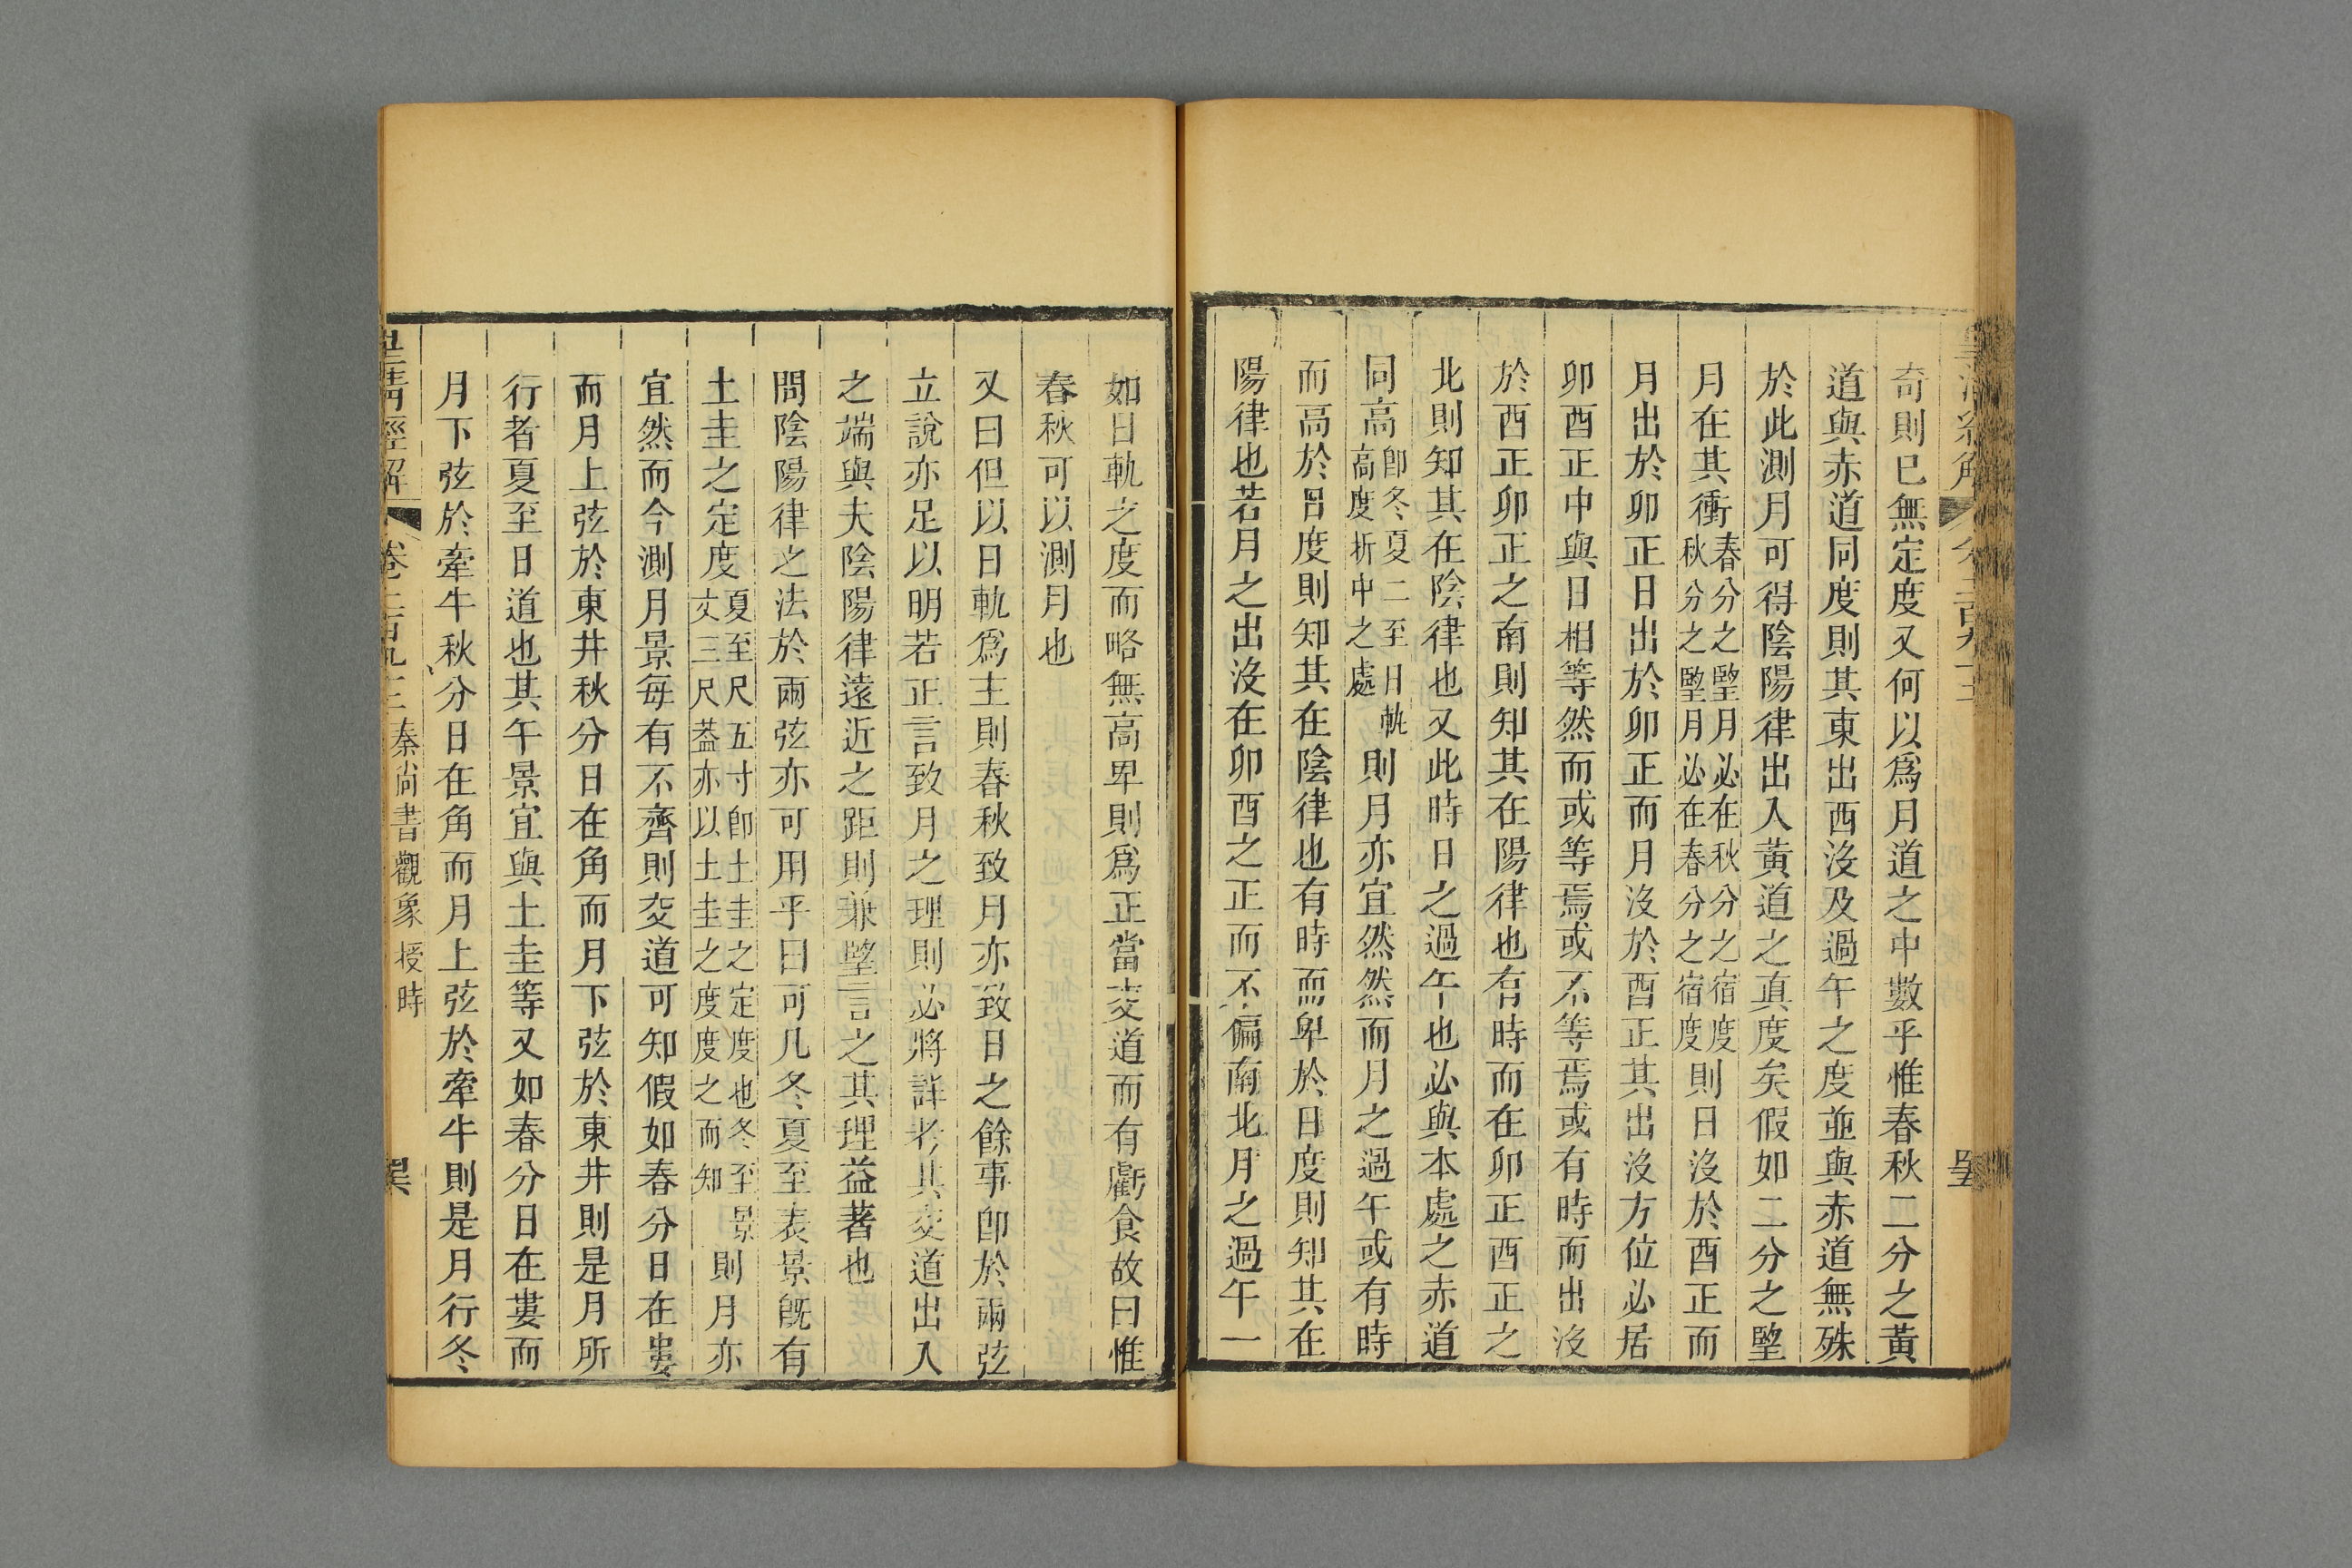 奇則已無定度又何以爲月道之中數乎惟春秋二分之黃
道與赤道同度則其東出西沒及過午之度並與赤道無殊
於此測月可得陰陽律出入黃道之真度矣假如二分之朢
月在其衝春分之朢月必在秋分之宿度秋分之朢月必在春分之宿度則日沒於酉正而
月出於卯正日出於卯正而月沒於酉正其出沒方位必居
卯酉正中與日相等然而或等焉或不等焉或有時而出沒
於酉正卯正之南則知其在陽律也有時而在卯正酉正之
北則知其在陰律也又此時日之過午也必與本處之赤道
同高卽冬夏二至日軌高度折中之處則月亦宜然然而月之過午或有時
而高於日度則知其在陰律也有時而卑於日度則知其在
陽律也若月之出沒在卯酉之正而不偏南北月之過午一
如日軌之度而略無高卑則爲正當交道而有虧食故曰惟
春秋可以測月也
又曰但以日軌爲主則春秋致月亦致日之餘事卽於兩弦
立說亦足以明若正言致月之理則必將詳考其交道出入
之端與夫陰陽律遠近之距則兼朢言之其理益著也
問陰陽律之法於兩弦亦可用乎曰可凡冬夏至表景旣有
土圭之定度夏至尺五寸卽土圭之定度也冬至景丈三尺葢亦以土圭之度度之而知則月亦
宜然而今測月景每有不齊則交道可知假如春分日在婁
而月上弦於東井秋分日在角而月下弦於東井則是月所
行者夏至日道也其午景宜與土圭等又如春分日在婁而
月下弦於牽牛秋分日在角而月上弦於牽牛則是月行冬
皇清經解
卷二百九十三
秦尚書觀象授時